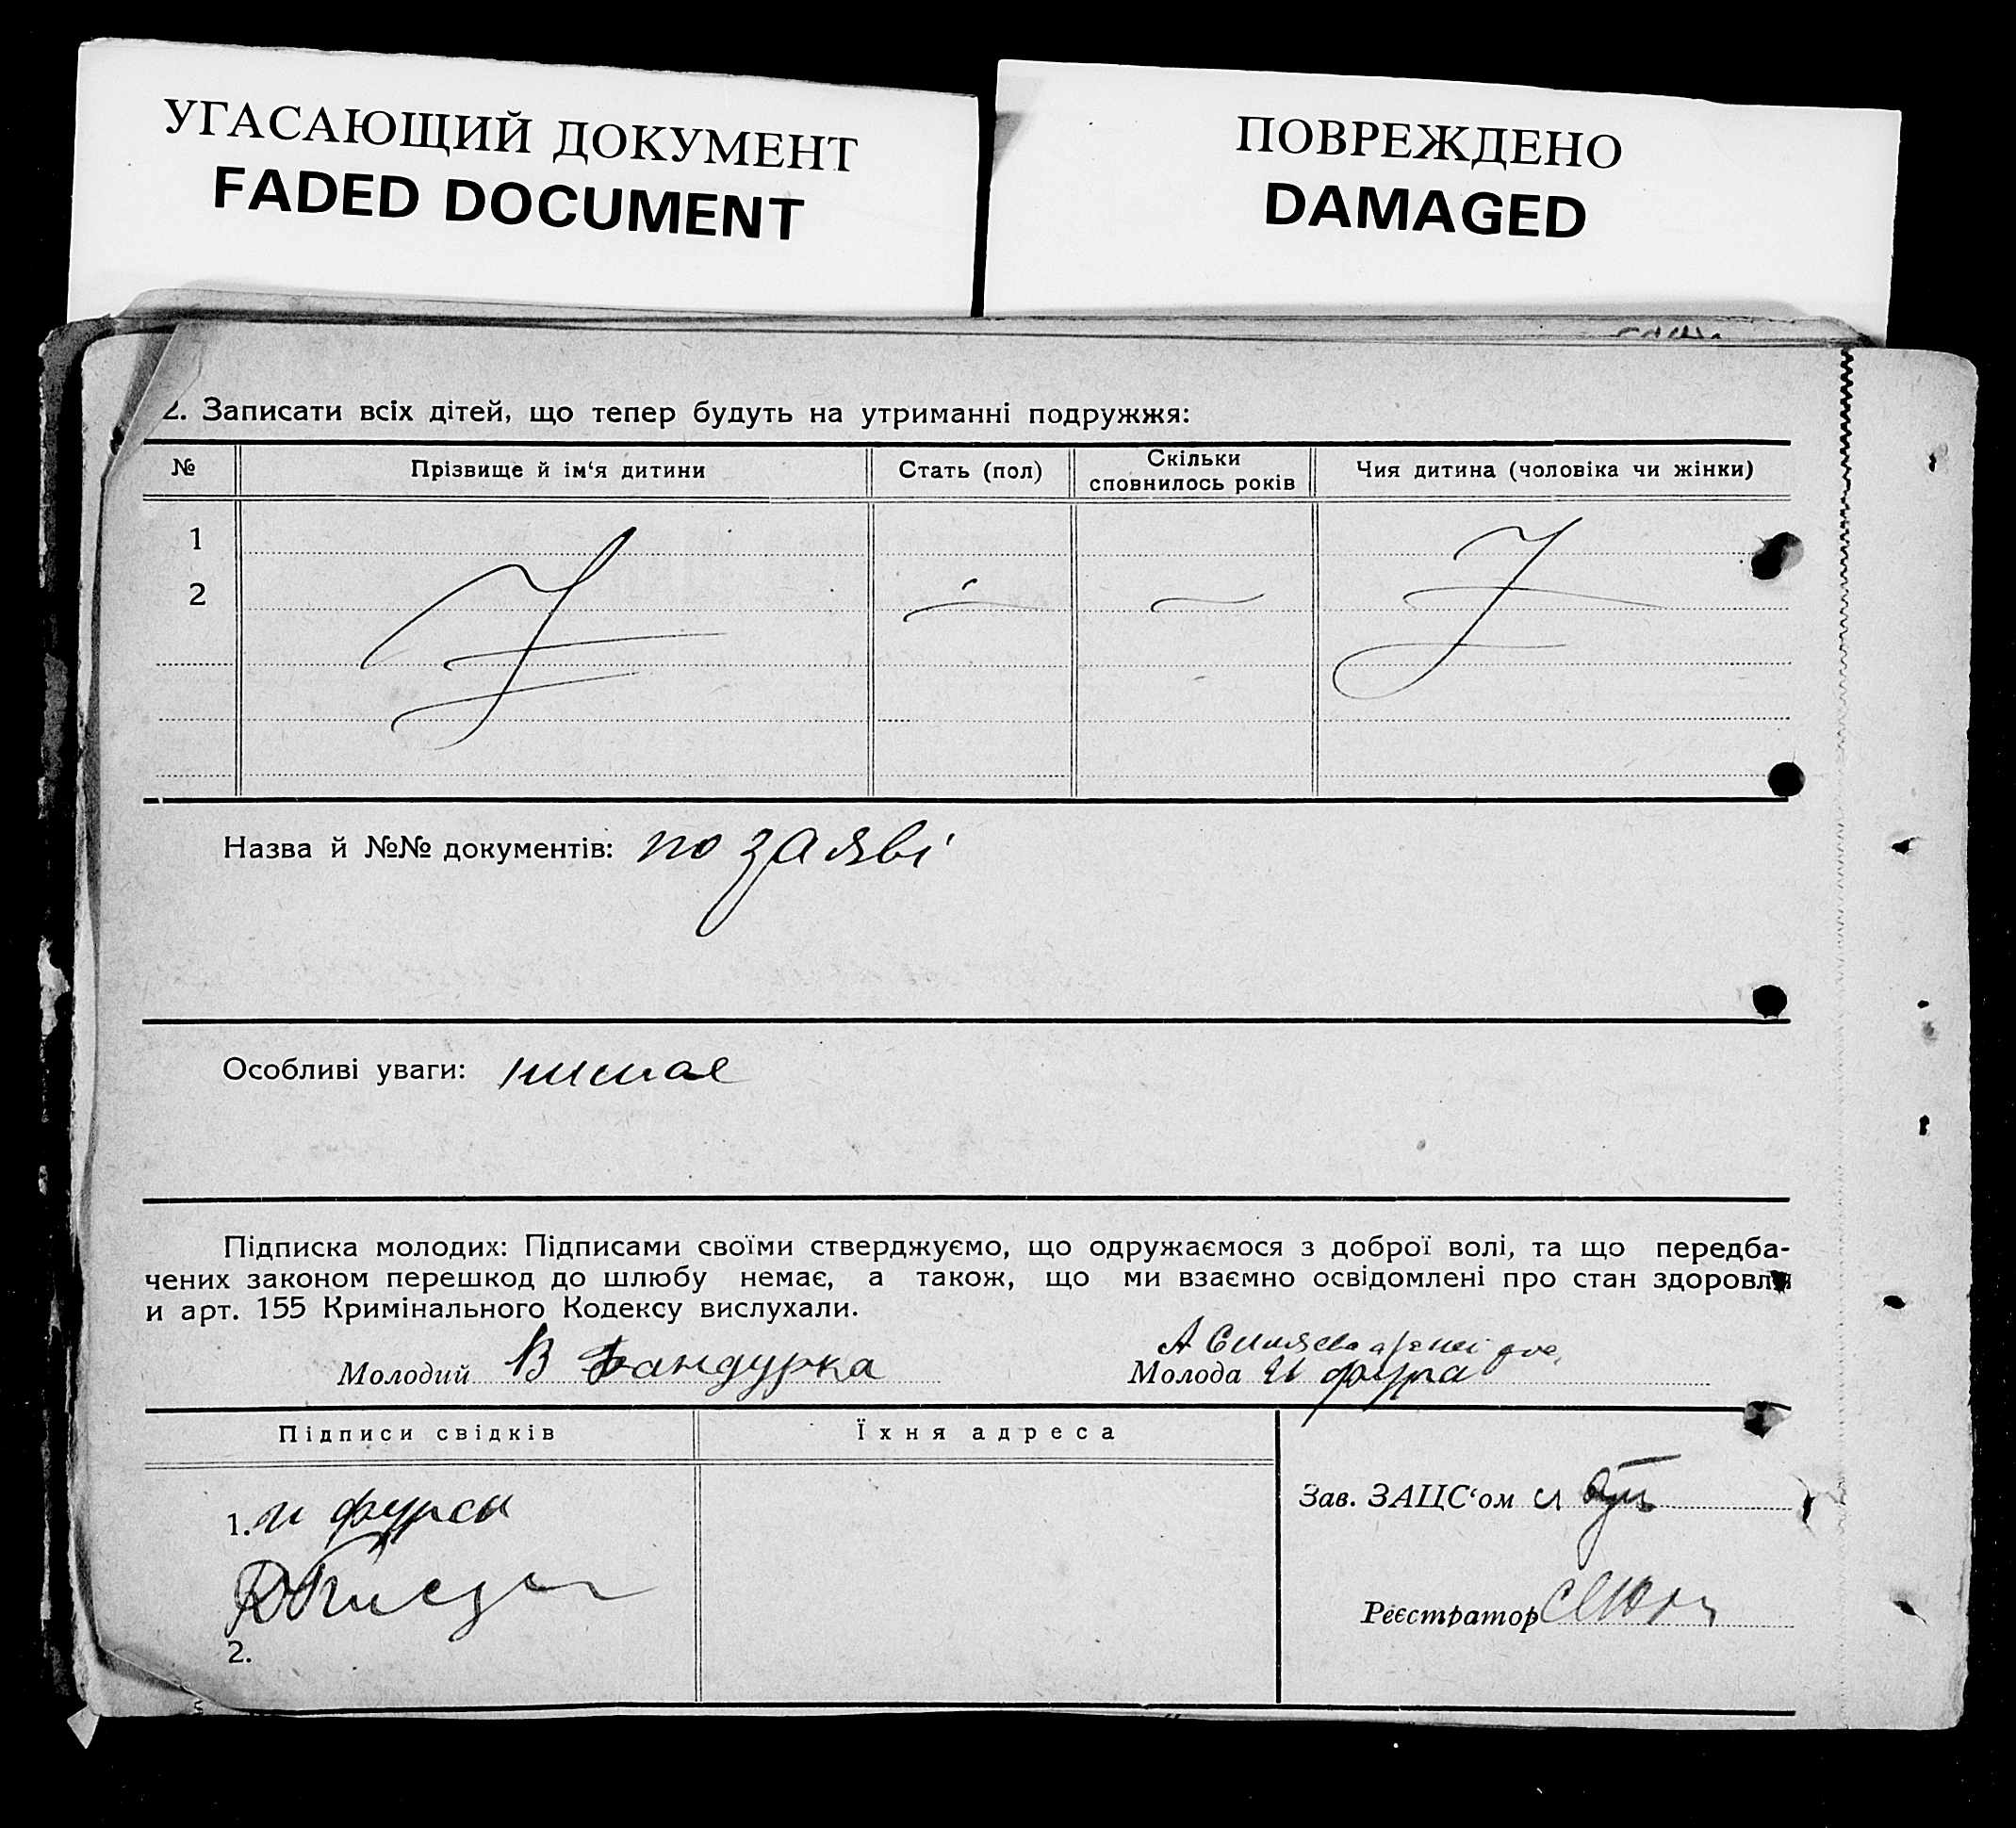 УГАСАЮЩИЙ ДОКУМЕНТ
FADED DOCUMENT
ПОВРЕЖДЕНО
DAMAGED
2. Записати всіх дітей, що тепер будуть на утриманні подружжя:
№ Прізвище й ім‘я дитини Стать (пол) Скільки сповнилось років Чия дитина (чоловіка чи жінки)
1
2
Назва й №№ документів: по заяві
Особливі уваги: немае
Підписка молодих: Підписами своїми стверджуємо, що одружаємося з доброї волі, та що передба-
чених законом перешкод до шлюбу немає, а також, що ми взаємно освідомлені про стан здоровля
и арт. 155 Кримінального Кодексу вислухали.
Молодий В Бандурка
Молода
Підписи свідків Їхня адреса
1. и фурса
2.
Зав. ЗАЦС‘ом
Реєстратор